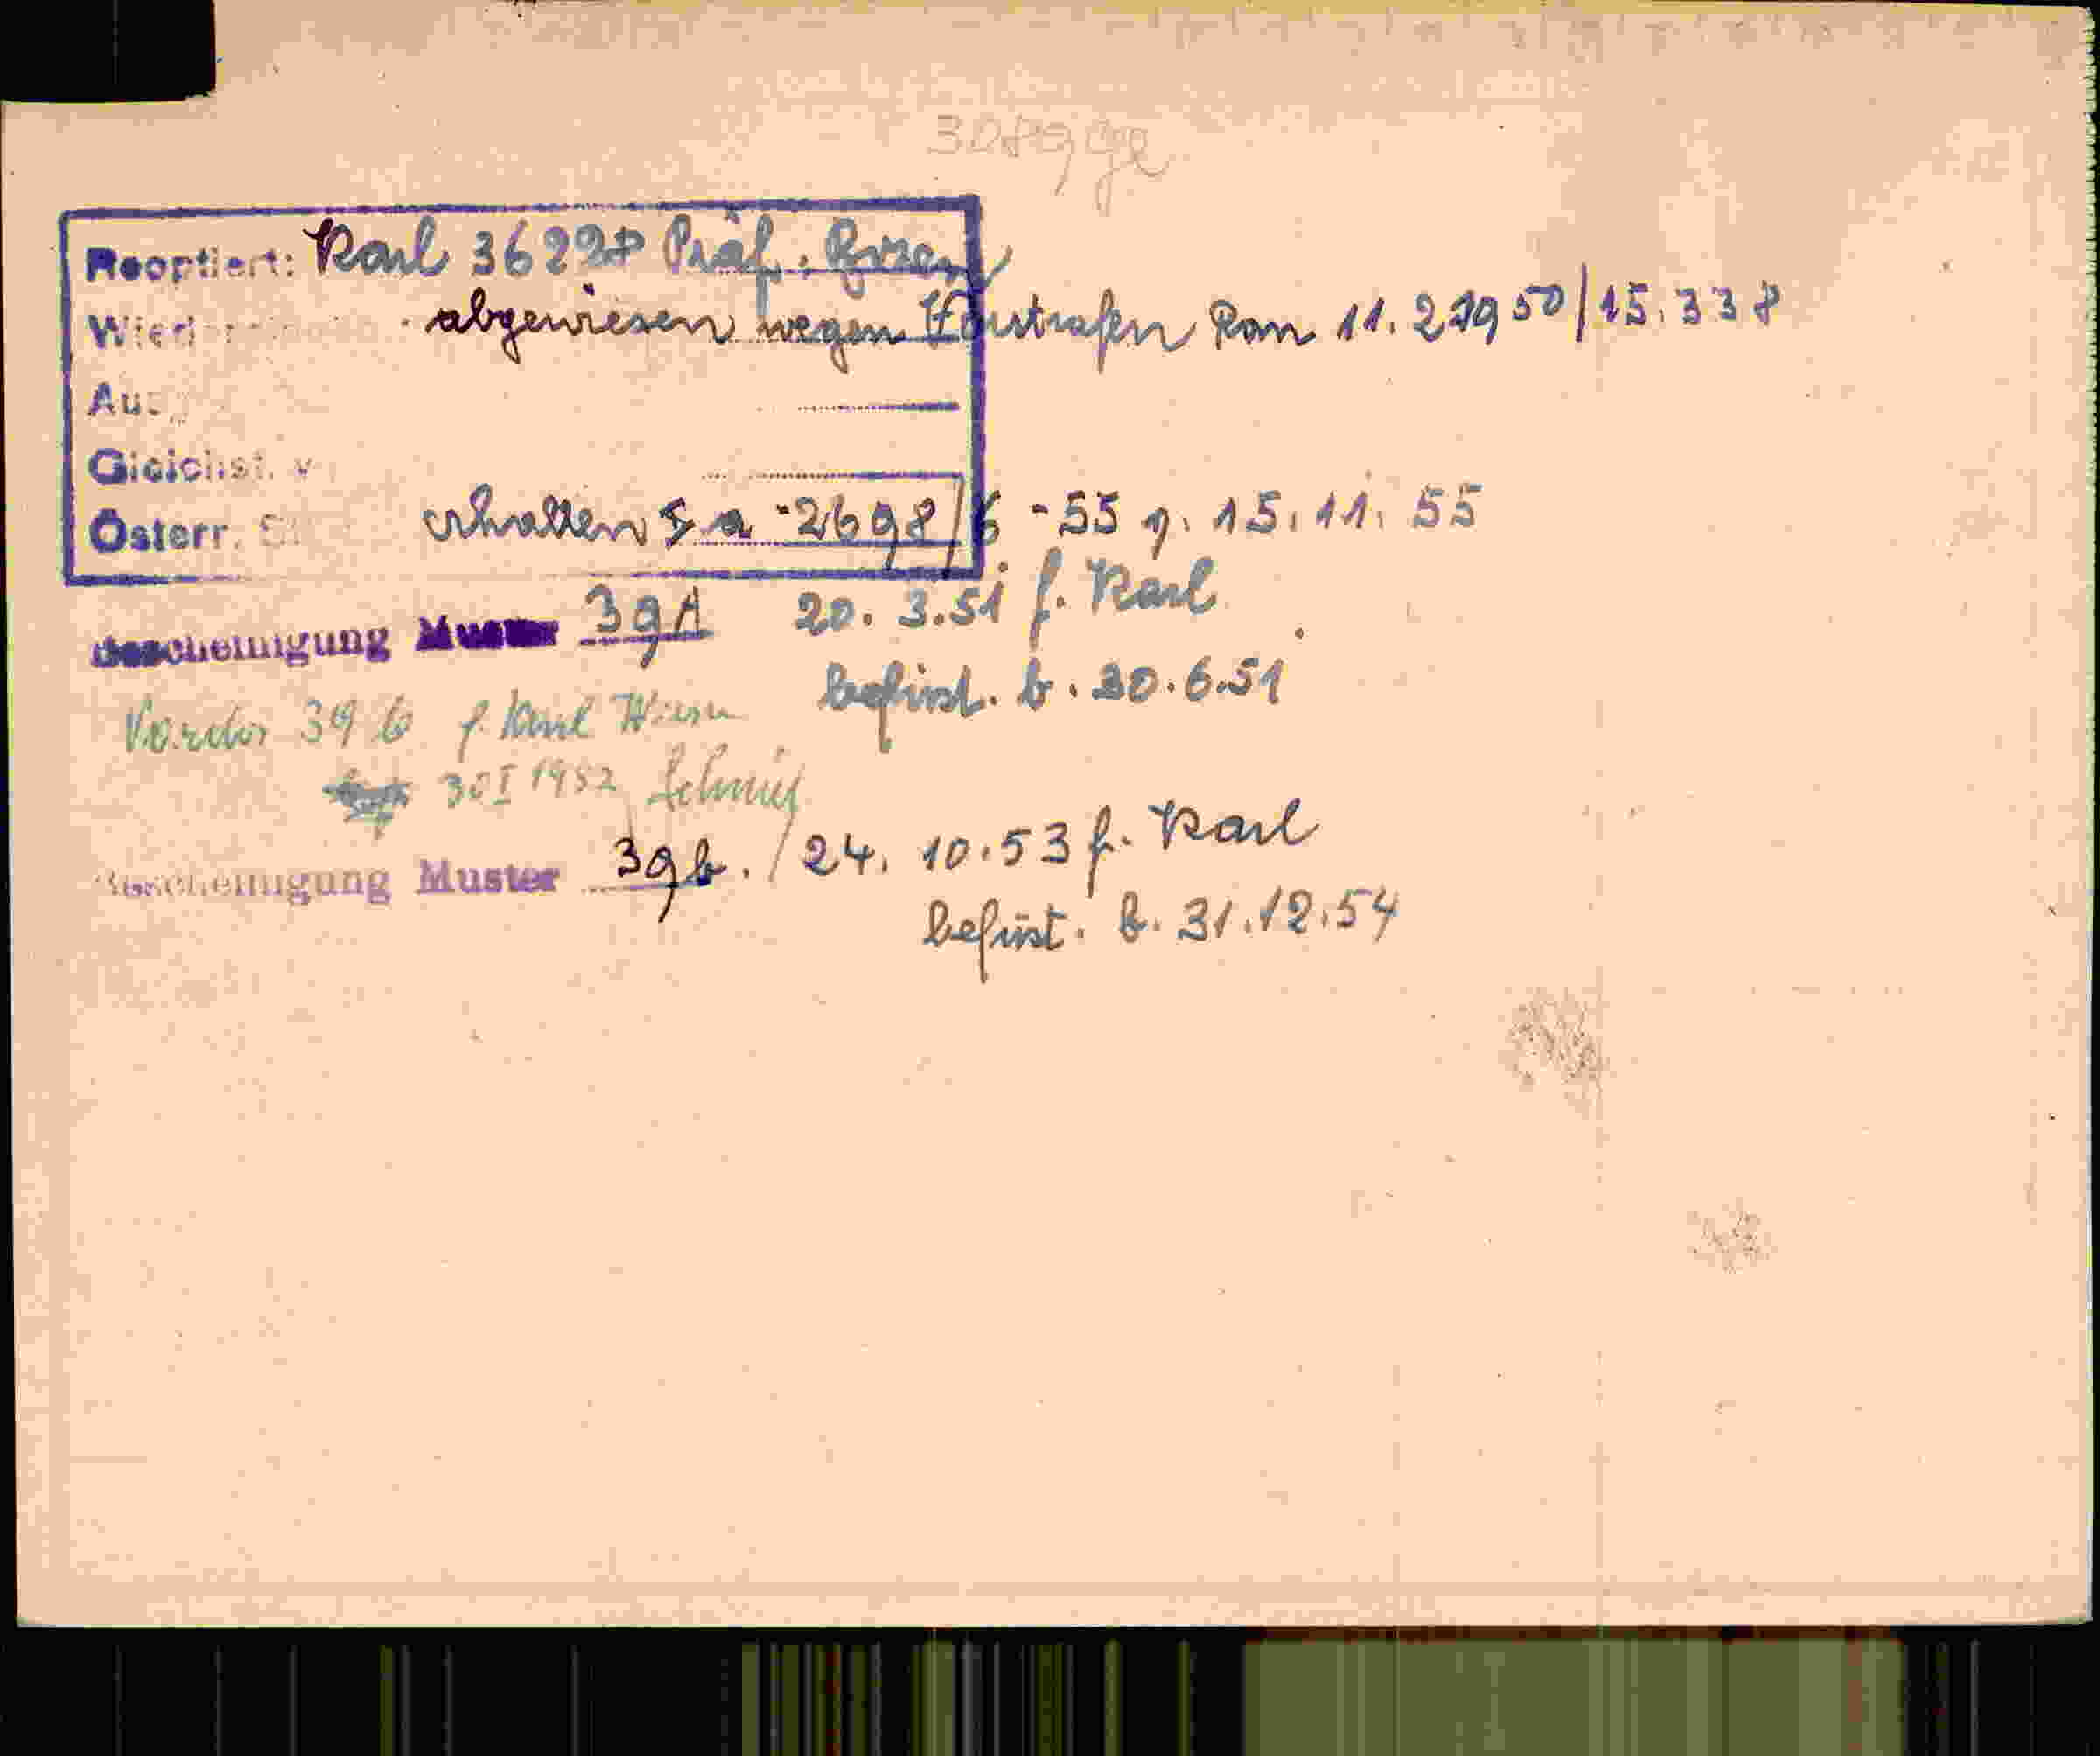 Reoptiert: Karl 36227 Präf. Bozen
abgewiesen wegen Vorstrafen Rom 11. 2 1950/15.338
Gleichst. v
Österr. erhalten a-2698/6-55 v. 15. 11. 55
Bescheinigung Muster 39A 20. 3.51 f. Karl
befrist. b. 30.6.51
39 b f. Karl Wien
30 I 1952
Bescheinigung Muster 39b. / 24. 10.53 f. Karl
befrist. b. 31.12.54